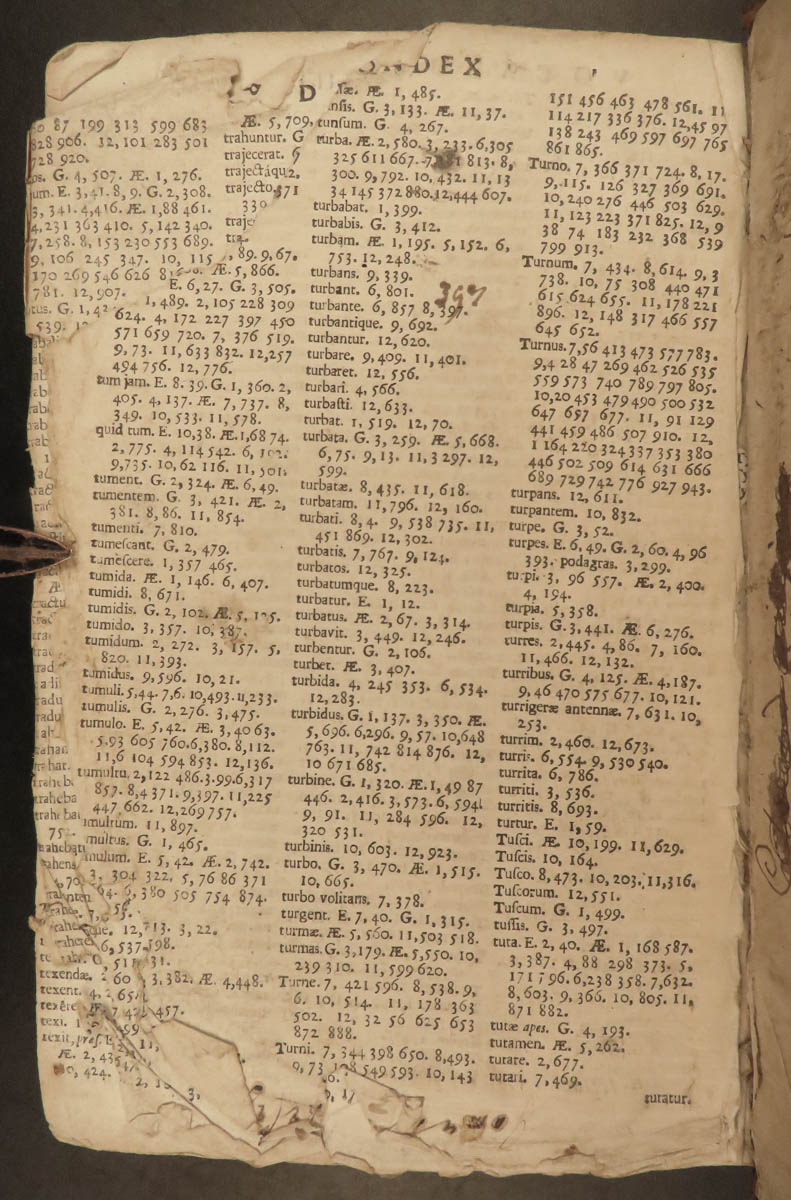 INDEX
87 199 313 599 683
828 906. 12, 101 283 501
728 920.
os. G. 4, 507. Æ. 1, 276.
jum. E. 3, 41. 8, 9. G. 2, 308.
3, 341. 4, 416. Æ. 1, 88 461.
4, 231 363 410. 5, 142 340.
7, 258. 8, 153 230 553 689.
9, 106 245 347. 10, 115
170 269 546 626
781. 12, 907.
tus. G. 1,
539.
Æ. 5, 709,
trahuntur. G
trajecerat.
trajectáque,
trajecto,
89. 9, 67.
Æ. 5, 866.
E. 6, 27. G. 3, 505.
1, 489. 2, 105 228 309
624. 4, 172 227 397 450
571 659 720. 7, 376 519.
9, 73. 11, 633 832. 12, 257
494 756. 12, 776.
tum jam. E. 8. 39. G. 1, 360. 2,
405. 4, 137. Æ. 7, 737. 8,
349. 10, 533. 11, 578.
quid tum. E. 10, 38. Æ. 1, 68 74.
2, 775. 4, 114 542. 6,
9, 735. 10, 62 116. 11, 501.
tument. G. 2, 324. Æ. 6, 49.
tumentem. G. 3, 421. Æ. 2,
381. 8, 86. 11, 854.
tumenti. 7, 810.
tumescant. G. 2, 479.
tumescere. 1, 357 465.
tumida. Æ. 1, 146. 6, 407.
tumidi. 8, 671.
tumidis. G. 2, 102. Æ. 5,
tumido. 3, 357. 10, 387.
tumidum. 2, 272. 3, 157. 5,
820. 11, 393.
tumidus. 9, 596. 10, 21.
tumuli. 5, 44. 7, 6. 10, 493. 11, 233.
tumulis. G. 2, 276. 3, 475.
tumulo. E. 5, 42. Æ. 3, 40 63.
5, 93 605 760. 6, 380. 8, 112.
11, 6 104 594 853. 12, 136.
tumultu, 2, 122 486. 3, 99. 6, 317
857. 8, 4 371. 9, 397. 11, 225
447 662. 12, 269 757.
multum. 11, 897.
multus. G. 1, 465.
mulum. E. 5, 42. Æ. 2, 742.
3, 304 322. 5, 76 86 371
380 505 754 874.
que. 12, 713. 3, 22.
6, 537 598.
texendæ. 2 60 3, 382. Æ. 4, 448.
texent. 4,
texêre
texi.
Æ. 2, 435
424.
Æ. 1, 485.
G. 3, 133. Æ. 11, 37.
tunsum. G. 4, 267.
turba. Æ. 2, 580. 3, 233. 6, 305
325 611 667. 7, 813. 8,
300. 9, 792. 10, 432. 11, 13
34 145 372 880. 12, 444 607.
turbabat. 1, 399.
turbabis. G. 3, 412.
turbam. Æ. 1, 195. 5, 152. 6,
753. 12, 248.
turbans. 9, 339.
turbant. 6, 801.
turbante. 6, 857 8, 397.
turbantique. 9, 692.
turbantur. 12, 620.
turbare. 9, 409. 11, 401.
turbaret. 12, 556.
turbari. 4, 566.
turbasti. 12, 633.
turbat. 1, 519. 12, 70.
turbata. G. 3, 259. Æ. 5, 668.
6, 75. 9, 13. 11, 3 297. 12,
599.
turbatæ. 8, 435. 11, 618.
turbatam. 11, 796. 12, 160.
turbati. 8, 4. 9, 538 735. 11,
451 869. 12, 302.
turbatis. 7, 767. 9, 124.
turbatos. 12, 325.
turbatumque. 8, 223.
turbatur. E. 1, 12.
turbatus. Æ. 2, 67. 3, 314.
turbavit. 3, 449. 12, 246.
turbentur. G. 2, 106.
turbet. Æ. 3, 407.
turbida. 4, 245 353. 6, 534.
12, 283.
turbidus. G. 1, 137. 3, 350. Æ.
5, 696. 6, 296. 9, 57. 10, 648
763. 11, 742 814 876. 12,
10 671 685.
turbine. G. 1, 320. Æ. 1, 49 87
446. 2, 416. 3, 573. 6, 594
9, 91. 11, 284 596. 12,
320 531.
turbinis. 10, 603. 12, 923.
turbo. G. 3, 470. Æ. 1, 515.
10, 665.
turbo volitans. 7, 378.
turgent. E. 7, 40. G. 1, 315.
turmæ. Æ. 5, 560. 11, 503 518.
turmas. G. 3, 179. Æ. 5, 550. 10,
239 310. 11, 599 620.
Turne. 7, 421 596. 8, 538. 9,
6. 10, 514. 11, 178 363
502. 12, 32 56 625 653
872 888.
Turni. 7, 344 398 650. 8, 493.
9, 73 549 593. 10, 143
151 456 463 478 561. 11
114 217 336 376. 12, 45 97
138 243 469 597 697 765
861 865.
Turno. 7, 366 371 724. 8, 17.
9, 115. 126 327 369 691.
10, 240 276 446 503 629.
11, 123 223 371 825. 12, 9
38 74 183 232 368 539
799 913.
Turnum. 7, 434. 8, 614. 9, 3
738. 10, 75 308 440 471
615 624 655. 11, 178 221
896. 12, 148 317 466 557
645 652.
Turnus. 7, 56 413 473 577 783.
9, 4 28 47 269 462 526 535
559 573 740 789 797 805.
10, 20 453 479 490 500 532
647 657 677. 11, 91 129
441 459 486 507 910. 12,
1 164 220 324 337 353 380
446 502 509 614 631 666
689 729 742 776 927 943.
turpans. 12, 611.
turpantem. 10, 832.
turpe. G. 3, 52.
turpes. E. 6, 49. G. 2, 60. 4, 96
393. podagras. 3, 299.
turpi. 3, 96 557. Æ. 2, 400.
4, 194.
turpia. 5, 358.
turpis. G. 3, 441. Æ. 6, 276.
turres. 2, 445. 4, 86. 7, 160.
11, 466. 12, 132.
turribus. G. 4, 125. Æ. 4, 187.
9, 46 470 575 677. 10, 121.
turrigeræ antennæ. 7, 631. 10,
253.
turrim. 2, 460. 12, 673.
turris. 6, 554. 9, 530 540.
turrita. 6, 786.
turriti. 3, 536.
turritis. 8, 693.
turtur. E. 1, 59.
Tusci. Æ. 10, 199. 11, 629.
Tuscis. 10, 164.
Tusco. 8, 473. 10, 203. 11, 316.
Tuscorum. 12, 551.
Tuscum. G. 1, 499.
tussis. G. 3, 497.
tuta. E. 2, 40. Æ. 1, 168 587.
3, 387. 4, 88 298 373. 5,
171 796. 6, 238 358. 7, 632.
8, 603. 9, 366. 10, 805. 11,
871 882.
tutæ apes. G. 4, 193.
tutamen. Æ. 5, 262.
tutare. 2, 677.
tutari. 7, 469.
tutatur.